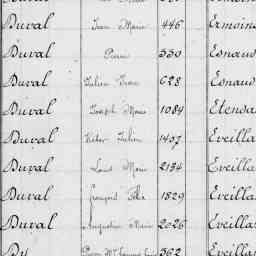 Duval Jean Marie 446 Ermoins
Duval Pierre 550 Esnaus
Duval Julien Jean 628 Esnaus
Duval Joseph Marie 1084 Etenda
Duval Victor Julien 1407 Eveilla
Duval Louis Marie 2134 Eveilla
Duval François 1829 Eveillar
Duval Augustin Marie 2026 Eveillar
Dy Pierre 362 Eveillar